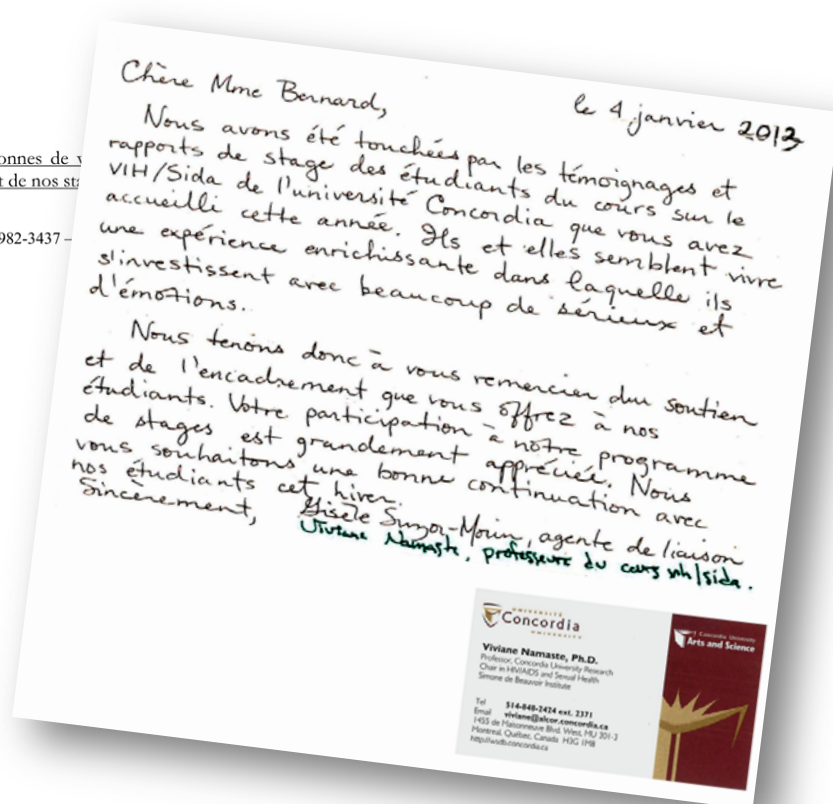 onnes de v
t de nos sta
982-3437 –
Chère Mme Bernard,
le 4 janvier 2013
Nous avons été touchées par les témoignages et
rapports de stage des étudiants du cours sur le
VIH/Sida de l'université Concordia que vous avez
accueilli cette année. Ils et elles semblent vivre
une expérience enrichissante dans laquelle ils
s'investissent avec beaucoup de sérieux et
d'émotions.
Nous tenons donc à vous remercier du soutien
et de l'encadrement que vous offrez à nos
étudiants. Votre participation à notre programme
de stages est grandement appréciée. Nous
vous souhaitons une bonne continuation avec
nos étudiants cet hiver.
Sincèrement,
Gisèle Suzor-Morin, agente de liaison
Viviane Namaste, professeure du cours vih/sida.
UNIVERSITÉ
Concordia
UNIVERSITY
Viviane Namaste, Ph.D.
Professor, Concordia University Research
Chair in HIV/AIDS and Sexual Health
Simone de Beauvoir Institute
Tel 514-848-2424 ext. 2371
Email viviane@alcor.concordia.ca
1455 de Maisonneuve Blvd. West, MU 201-3
Montreal, Québec, Canada H3G 1M8
http://wsdb.concordia.ca
Concordia University
Arts and Science